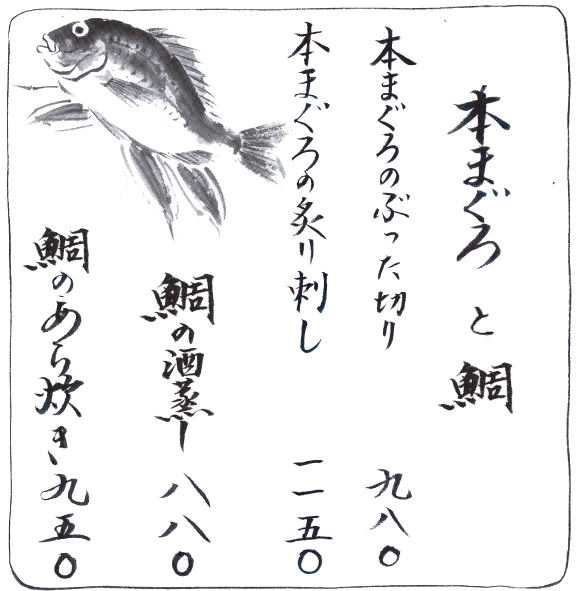 本まぐろ と 鯛
本まぐろのぶった切り 九八〇
本まぐろの炙り刺し 一一五〇
鯛の酒蒸し 八八〇
鯛のあら炊き 九五〇